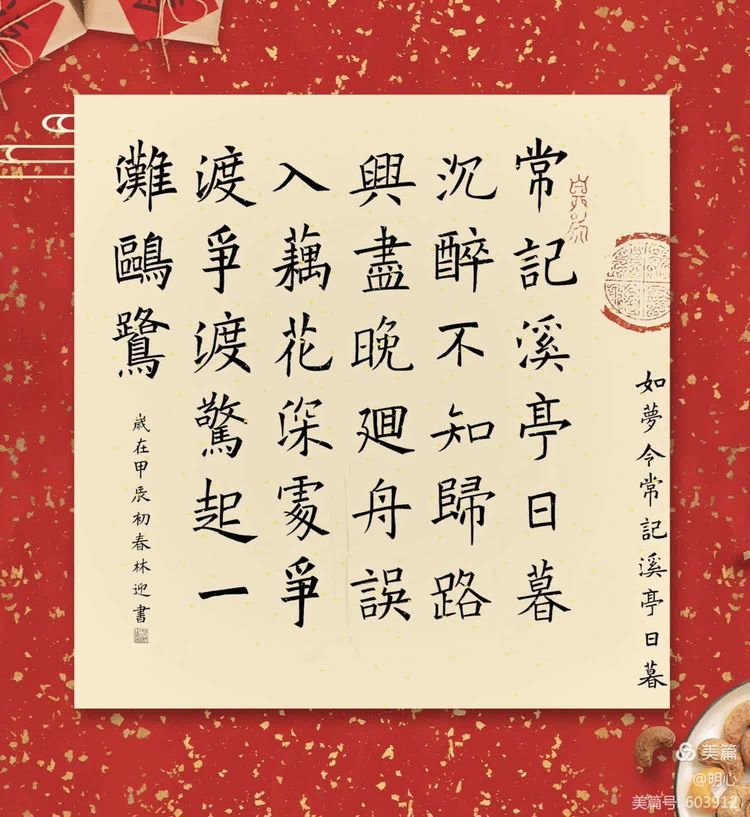 如夢令常記溪亭日暮
常記溪亭日暮
沉醉不知歸路
興盡晚廻舟誤
入藕花深處爭
渡爭渡驚起一
灘鷗鷺
歲在甲辰初春林迎書
美篇
@明心
美篇号: 603912